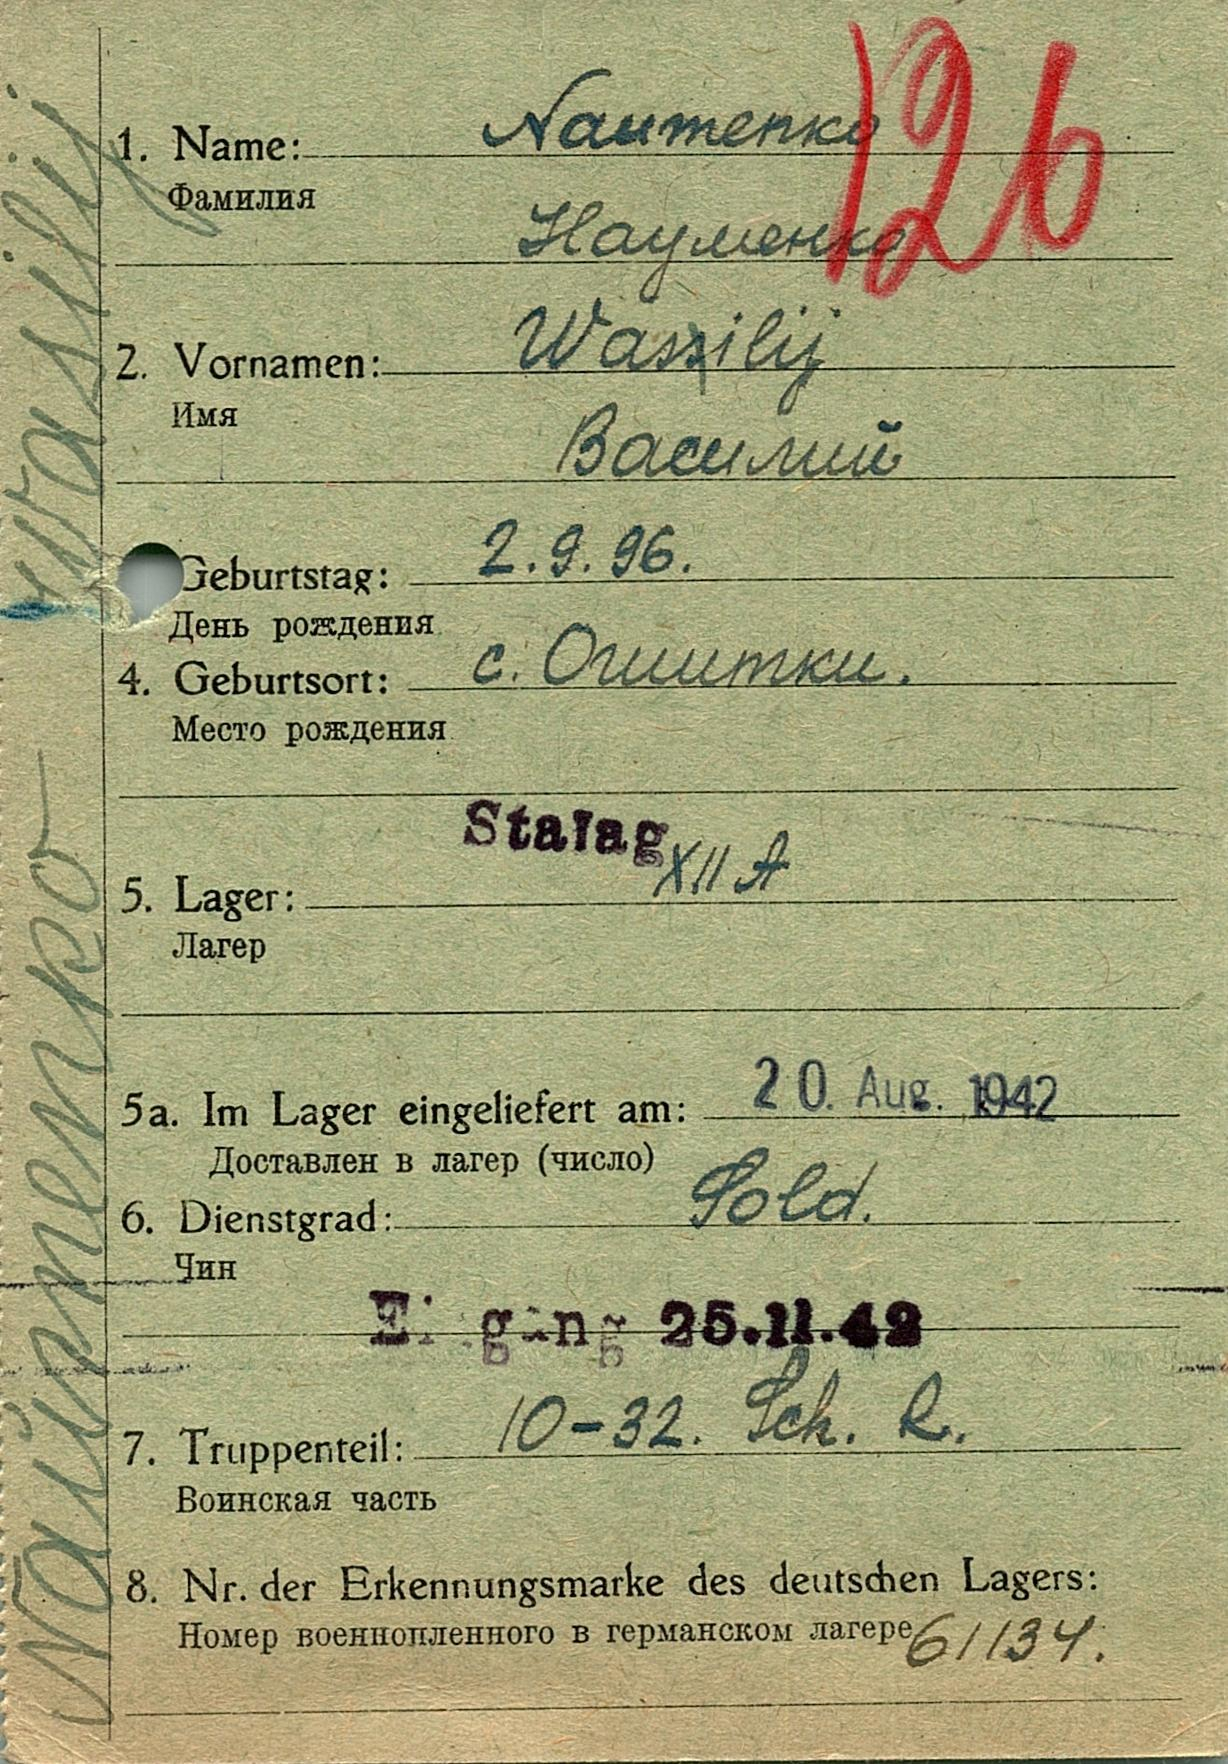 1. Name: Naumenko
Фамилия
Науменко
126
2. Vornamen: Wassilij
Имя
Василий
Geburtstag: 2.9.96.
День рождения
4. Geburtsort: с. Ошитки.
Место рождения
Stalag XII A
5. Lager:
Лагер
5a. Im Lager eingeliefert am: 20. Aug. 1942
Доставлен в лагер (число)
6. Dienstgrad: Sold.
Чин
Eingang 25.11.42
7. Truppenteil: 10-32. Sch. R.
Воинская часть
8. Nr. der Erkennungsmarke des deutschen Lagers:
Номер военнопленного в германском лагере 61134.
Naumenko Wasilij